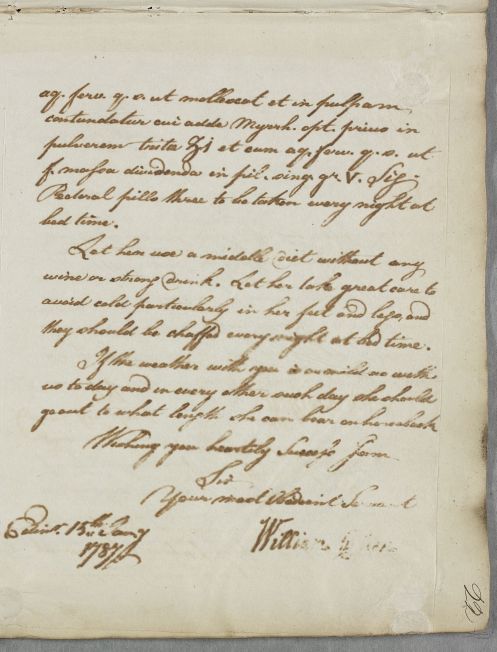 aq. ferv. q. s. ut mollescat et in pulpam
contundatur cui adde Myrrh. opt. prius in
pulverem trita ʒi et cum aq. ferv. q. s. ut
f. massa dividenda in pil. sing. gr. V. Sig.
Pectoral pills three to be taken every night at
bed time.
Let her use a middle diet without any
wine or strong drink. Let her take great care to
avoid cold particularly in her feet and legs, and
they should be chaffed every night at bed time.
If the weather with you is as mild as with
us to day and in every other such day she should
go out to what length she can bear on horseback
Wishing you heartily Success I am
Sir
Your most Obedient Servant
Edinr. 15th Jany
William
1787
22